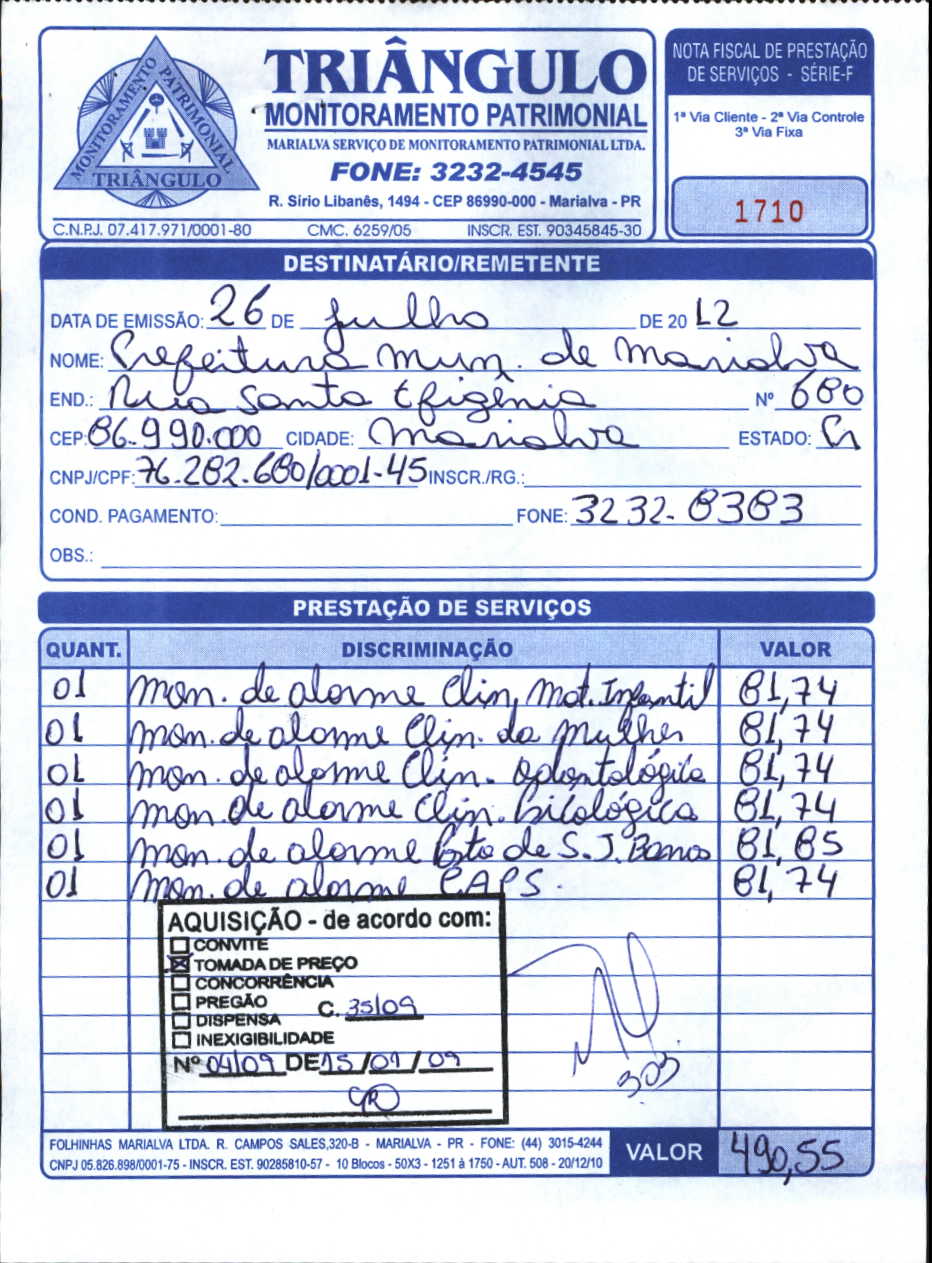 MONITORAMENTO PATRIMONIAL
TRIÂNGULO
TRIÂNGULO
MONITORAMENTO PATRIMONIAL
MARIALVA SERVIÇO DE MONITORAMENTO PATRIMONIAL LTDA.
FONE: 3232-4545
R. Sírio Libanês, 1494 - CEP 86990-000 - Marialva - PR
C.N.P.J. 07.417.971/0001-80 CMC. 6259/05 INSCR. EST. 90345845-30
NOTA FISCAL DE PRESTAÇÃO
DE SERVIÇOS - SÉRIE-F
1ª Via Cliente - 2ª Via Controle
3ª Via Fixa
1710
DESTINATÁRIO/REMETENTE
DATA DE EMISSÃO: 26 DE Julho DE 20 12
NOME: Prefeitura Mun. de Marialva
END.: Rua Santa Efigênia Nº 680
CEP: 86.990.000 CIDADE: Marialva ESTADO: Pr
CNPJ/CPF: 76.282.680/0001-45 INSCR./RG.:
COND. PAGAMENTO: FONE: 3232-8383
OBS.:
PRESTAÇÃO DE SERVIÇOS
QUANT. DISCRIMINAÇÃO VALOR
01 Mon. de alarme Clin. Mat. Infantil 81,74
01 Mon. de alarme Clin. da Mulher 81,74
01 Mon. de alarme Clin. Odontológica 81,74
01 Mon. de alarme Clin. 81,74
01 Mon. de alarme Pto de S. J. 81,85
01 Mon. de alarme CAPS. 81,74
AQUISIÇÃO - de acordo com:
CONVITE
TOMADA DE PREÇO
CONCORRÊNCIA
PREGÃO C. 35/09
DISPENSA
INEXIGIBILIDADE
Nº 04/09 DE 15/01/09
303
FOLHINHAS MARIALVA LTDA. R. CAMPOS SALES,320-B - MARIALVA - PR - FONE: (44) 3015-4244
CNPJ 05.826.898/0001-75 - INSCR. EST. 90285810-57 - 10 Blocos - 50X3 - 1251 à 1750 - AUT. 508 - 20/12/10
VALOR 490,55